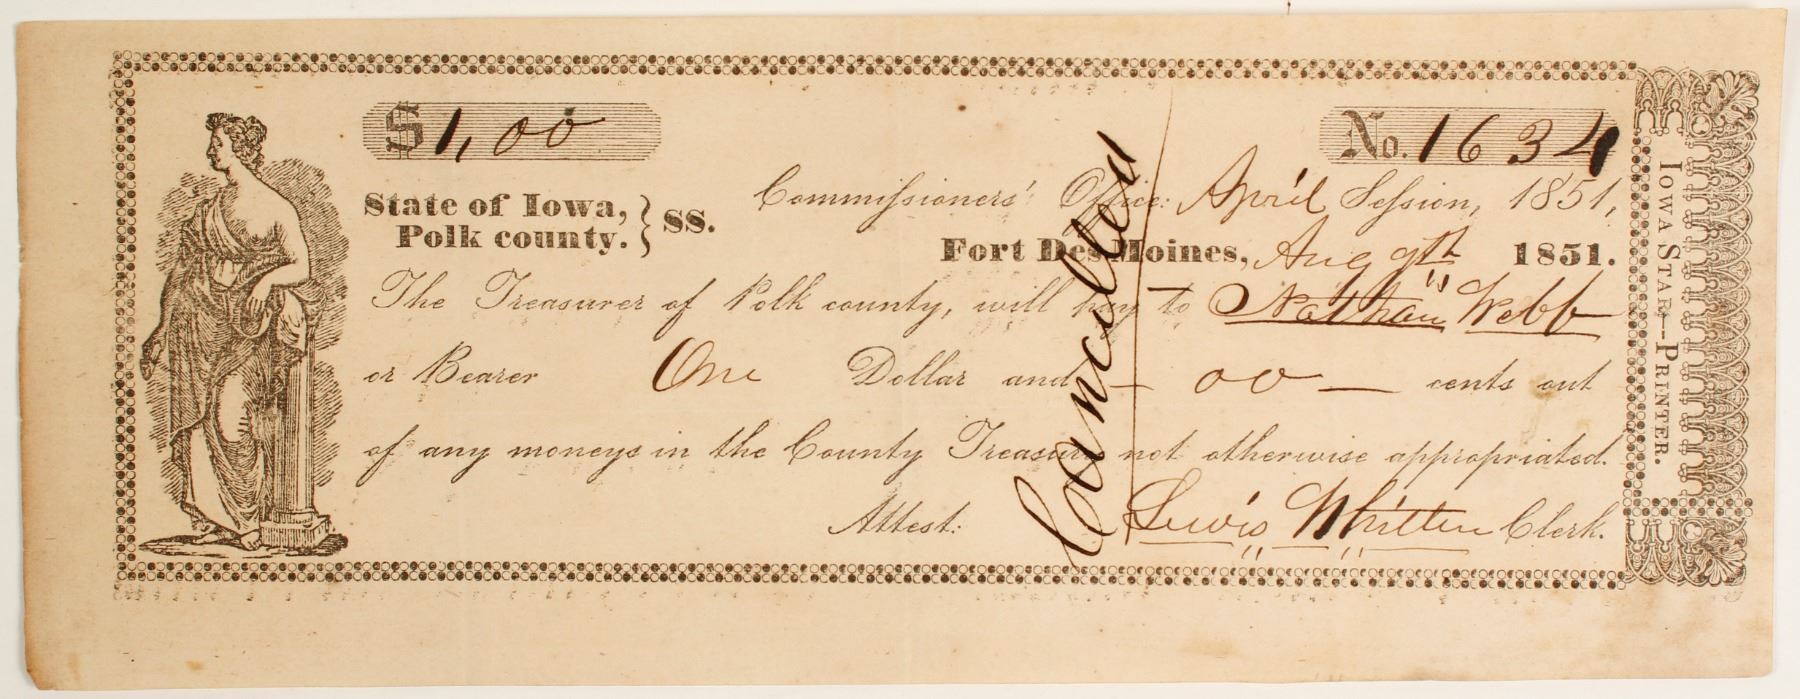 $1,00
No. 1634
State of Iowa, } SS.
Polk county.
Commissioners' Office: April Session, 1851,
Fort Des Moines, Aug 9th 1851.
The Treasurer of Polk county, will pay to Nathan Webb
or Bearer One Dollar and — 00 — cents out
of any moneys in the County Treasury not otherwise appropriated.
Attest: Lewis Whitten Clerk.
Cancelled
IOWA STAR—PRINTER.